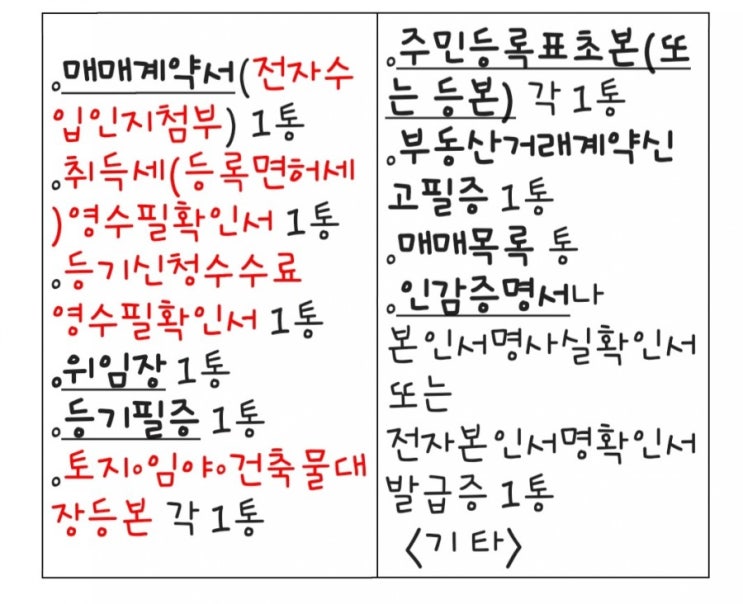 .매매계약서(전자수
입인지첨부) 1통
.취득세(등록면허세
)영수필확인서 1통
.등기신청수수료
영수필확인서 1통
.위임장 1통
.등기필증 1통
.토지·임야·건축물대
장등본 각 1통
.주민등록표초본(또
는 등본) 각 1통
.부동산거래계약신
고필증 1통
.매매목록 통
.인감증명서나
본인서명사실확인서
또는
전자본인서명확인서
발급증 1통
〈기타〉